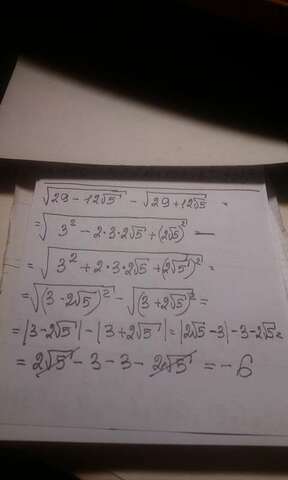 √(29 - 12√5) - √(29 + 12√5) =
= √(3² - 2·3·2√5 + (2√5)²) -
- √(3² + 2·3·2√5 + (2√5)²) =
= √(3 - 2√5)² - √(3 + 2√5)² =
= |3 - 2√5| - |3 + 2√5| = |2√5 - 3| - 3 - 2√5 =
= 2√5 - 3 - 3 - 2√5 = - 6